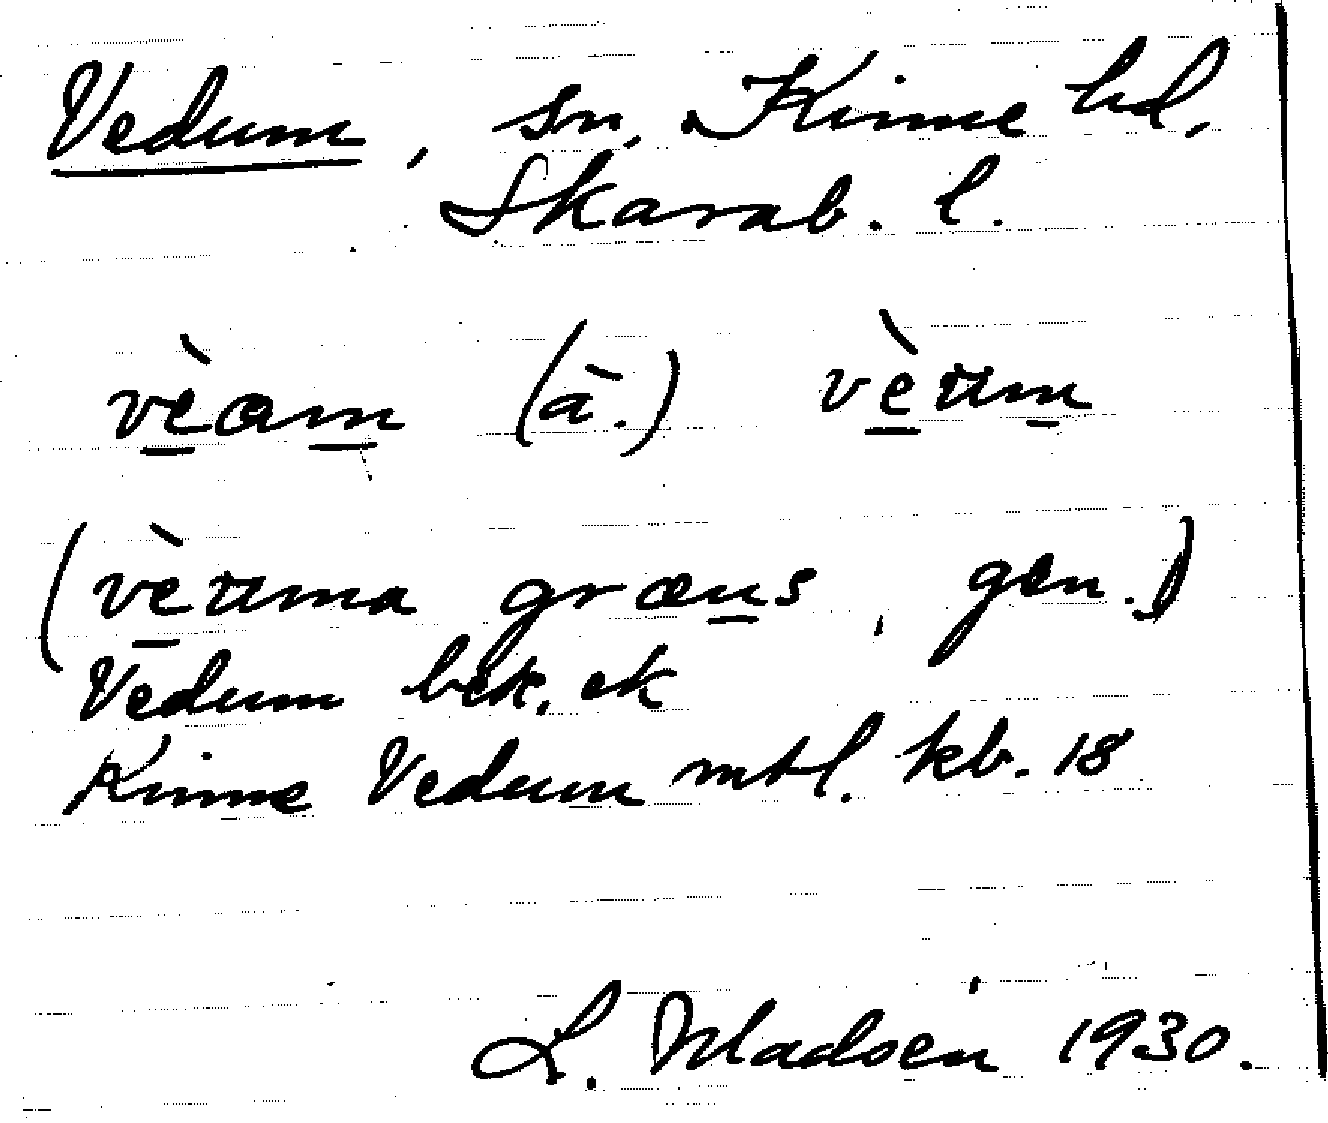 Vedum, sn, Kinne hd,
Skarab. l.
vèam (ä.) vèum
(vèuma græns, gen.)
Vedum bek. ek
Kinne Vedum mtl. kb. 18
L. Madsén 1930.